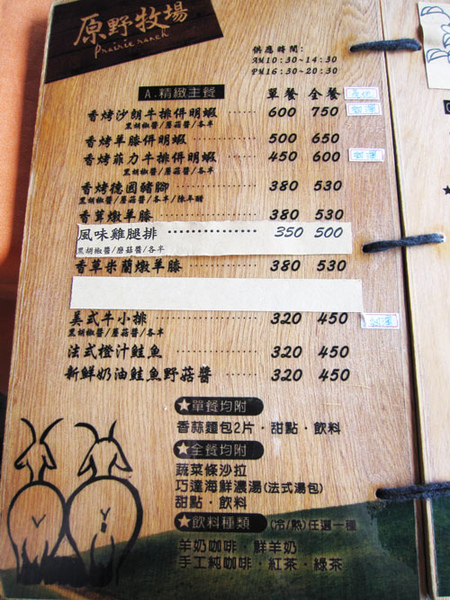 原野牧場
Prairie ranch
供應時間:
AM10:30~14:30
PM16:30~20:30
A.精緻主餐 單餐 全餐
香烤沙朗牛排併明蝦 ‥‥‥ 600 750
黑胡椒醬/蘑菇醬/各半
香烤羊膝併明蝦 ‥‥‥ 500 650
香烤菲力牛排併明蝦 ‥‥‥ 450 600
黑胡椒醬/蘑菇醬/各半
香烤德國豬腳 ‥‥‥ 380 530
黑胡椒醬/蘑菇醬/各半/陳年醋
香草燉羊膝 ‥‥‥ 380 530
風味雞腿排 ‥‥‥ 350 500
黑胡椒醬/蘑菇醬/各半
香草米蘭燉羊膝 ‥‥‥ 380 530
美式牛小排 ‥‥‥ 320 450
黑胡椒醬/蘑菇醬/各半
法式橙汁鮭魚 ‥‥‥ 320 450
新鮮奶油鮭魚野菇醬 ‥‥‥ 320 450
★單餐均附
香蒜麵包2片・甜點・飲料
★全餐均附
蔬菜條沙拉
巧達海鮮濃湯(法式湯包)
甜點・飲料
★飲料種類 (冷/熱)任選一種
羊奶咖啡・鮮羊奶
手工純咖啡・紅茶・綠茶